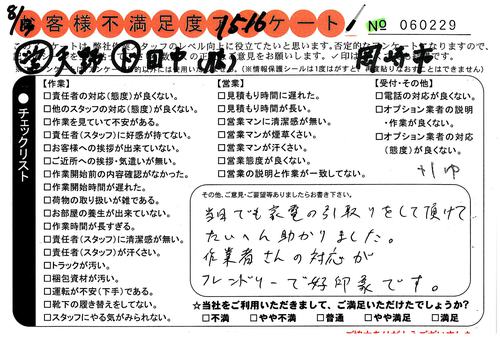 お客様不満足度アンケート!
№ 060229
【作業】
□責任者の対応(態度)が良くない。
□他のスタッフの対応(態度)が良くない。
□作業を見ていて不安がある。
□責任者(スタッフ)に好感が持てない。
□お客様への挨拶が出来ていない。
□ご近所への挨拶・気遣いが無い。
□作業開始前の内容確認がなかった。
□作業開始時間が遅れた。
□荷物の取り扱いが雑である。
□お部屋の養生が出来ていない。
□作業時間が長すぎる。
□責任者(スタッフ)に清潔感が無い。
□責任者(スタッフ)が汗くさい。
□トラックが汚い。
□梱包資材が汚い。
□運転が不安(下手)である。
□靴下の履き替えをしてない。
□スタッフにやる気がみられない。
【営業】
□見積もり時間に遅れた。
□見積もり時間が長い。
□営業マンに清潔感が無い。
□営業マンが煙草くさい。
□営業マンが汗くさい。
□営業態度が良くない。
□営業の説明と作業が一致してない。
【受付・その他】
□電話の対応が良くない。
□オプション業者の説明
・作業が良くない。
□オプション業者の対応
(態度)が良くない。
●チェックリスト
その他、ご意見・ご要望等ありましたらお書き下さい。
当日でも家電の引取りをして頂けて
たいへん助かりました。
作業者さんの対応が
フレンドリーで好印象です。
☆当社をご利用いただきまして、ご満足いただけたでしょうか?
□不満 □やや不満 □普通 □やや満足 □満足